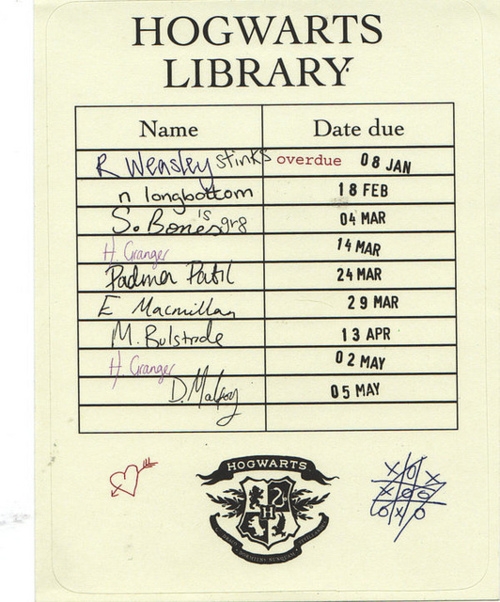 HOGWARTS
LIBRARY
Name Date due
R Weasley stinks overdue 08 JAN
n longbottom 18 FEB
S. Bones is gr8 04 MAR
H. Granger 14 MAR
Padma Patil 24 MAR
E Macmillan 29 MAR
M. Bulstrode 13 APR
H. Granger 02 MAY
D. Malfoy 05 MAY
HOGWARTS
H